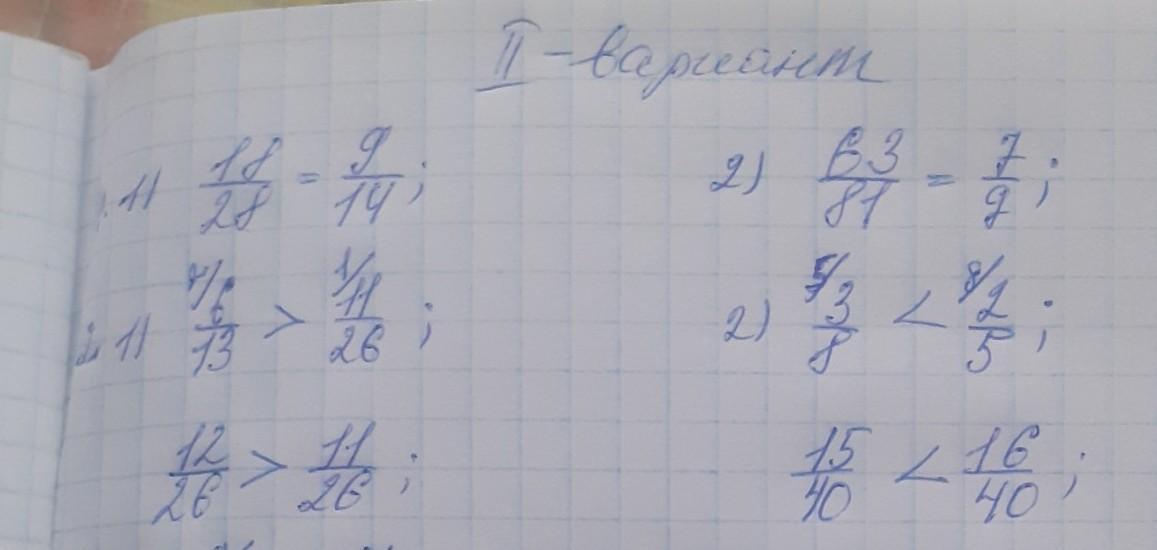 II - вариант
1. 1) 18/28 = 9/14; 2) 63/81 = 7/9;
2. 1) 6/13 > 1/ 11/26; 2) 5/ 3/8 < 8/ 2/5;
12/26 > 11/26; 15/40 < 16/40;